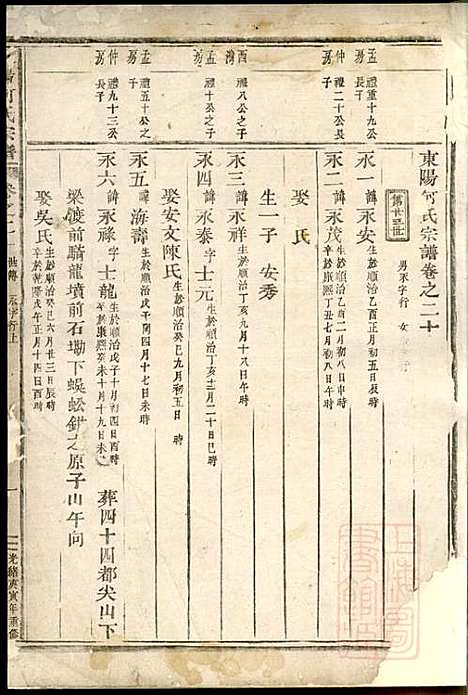 東陽何氏宗譜卷之二十
第廿五世 男永字行 女
孟房 禮重十九公長子
永一 諱永安 生於順治乙酉正月初五日 時
仲房 禮二十公長子
永二 諱永茂 生於順治乙酉二月初八日 時 卒於康熙丁丑七月初八日午時
娶 氏
生一子 安秀
酉灣 禮八公之子
永三 諱永祥 生於順治丁亥九月十八日午時
孟房 禮十公之子
永四 諱永泰 字士元 生於順治丁亥三月二十日子時
娶安文陳氏 生於順治癸巳九月初五日 時
孟房 禮五十公之子
永五 諱海壽 生於順治戊子閏四月十七日未時
仲房 禮九十三公長子
永六 諱永祿 字士龍 生於順治戊子十月初四日酉時 卒於康熙癸未十月十九日未時 葬四十四都尖山下
梁渡前騎龍墳前石塴下蜈蚣鉗之原子山午向
娶吳氏 生於順治癸巳六月廿三日辰時 卒於乾隆戊午正月十四日酉時
何氏宗譜
卷之二十 世傳 永字行止
一
光緒庚寅年重修